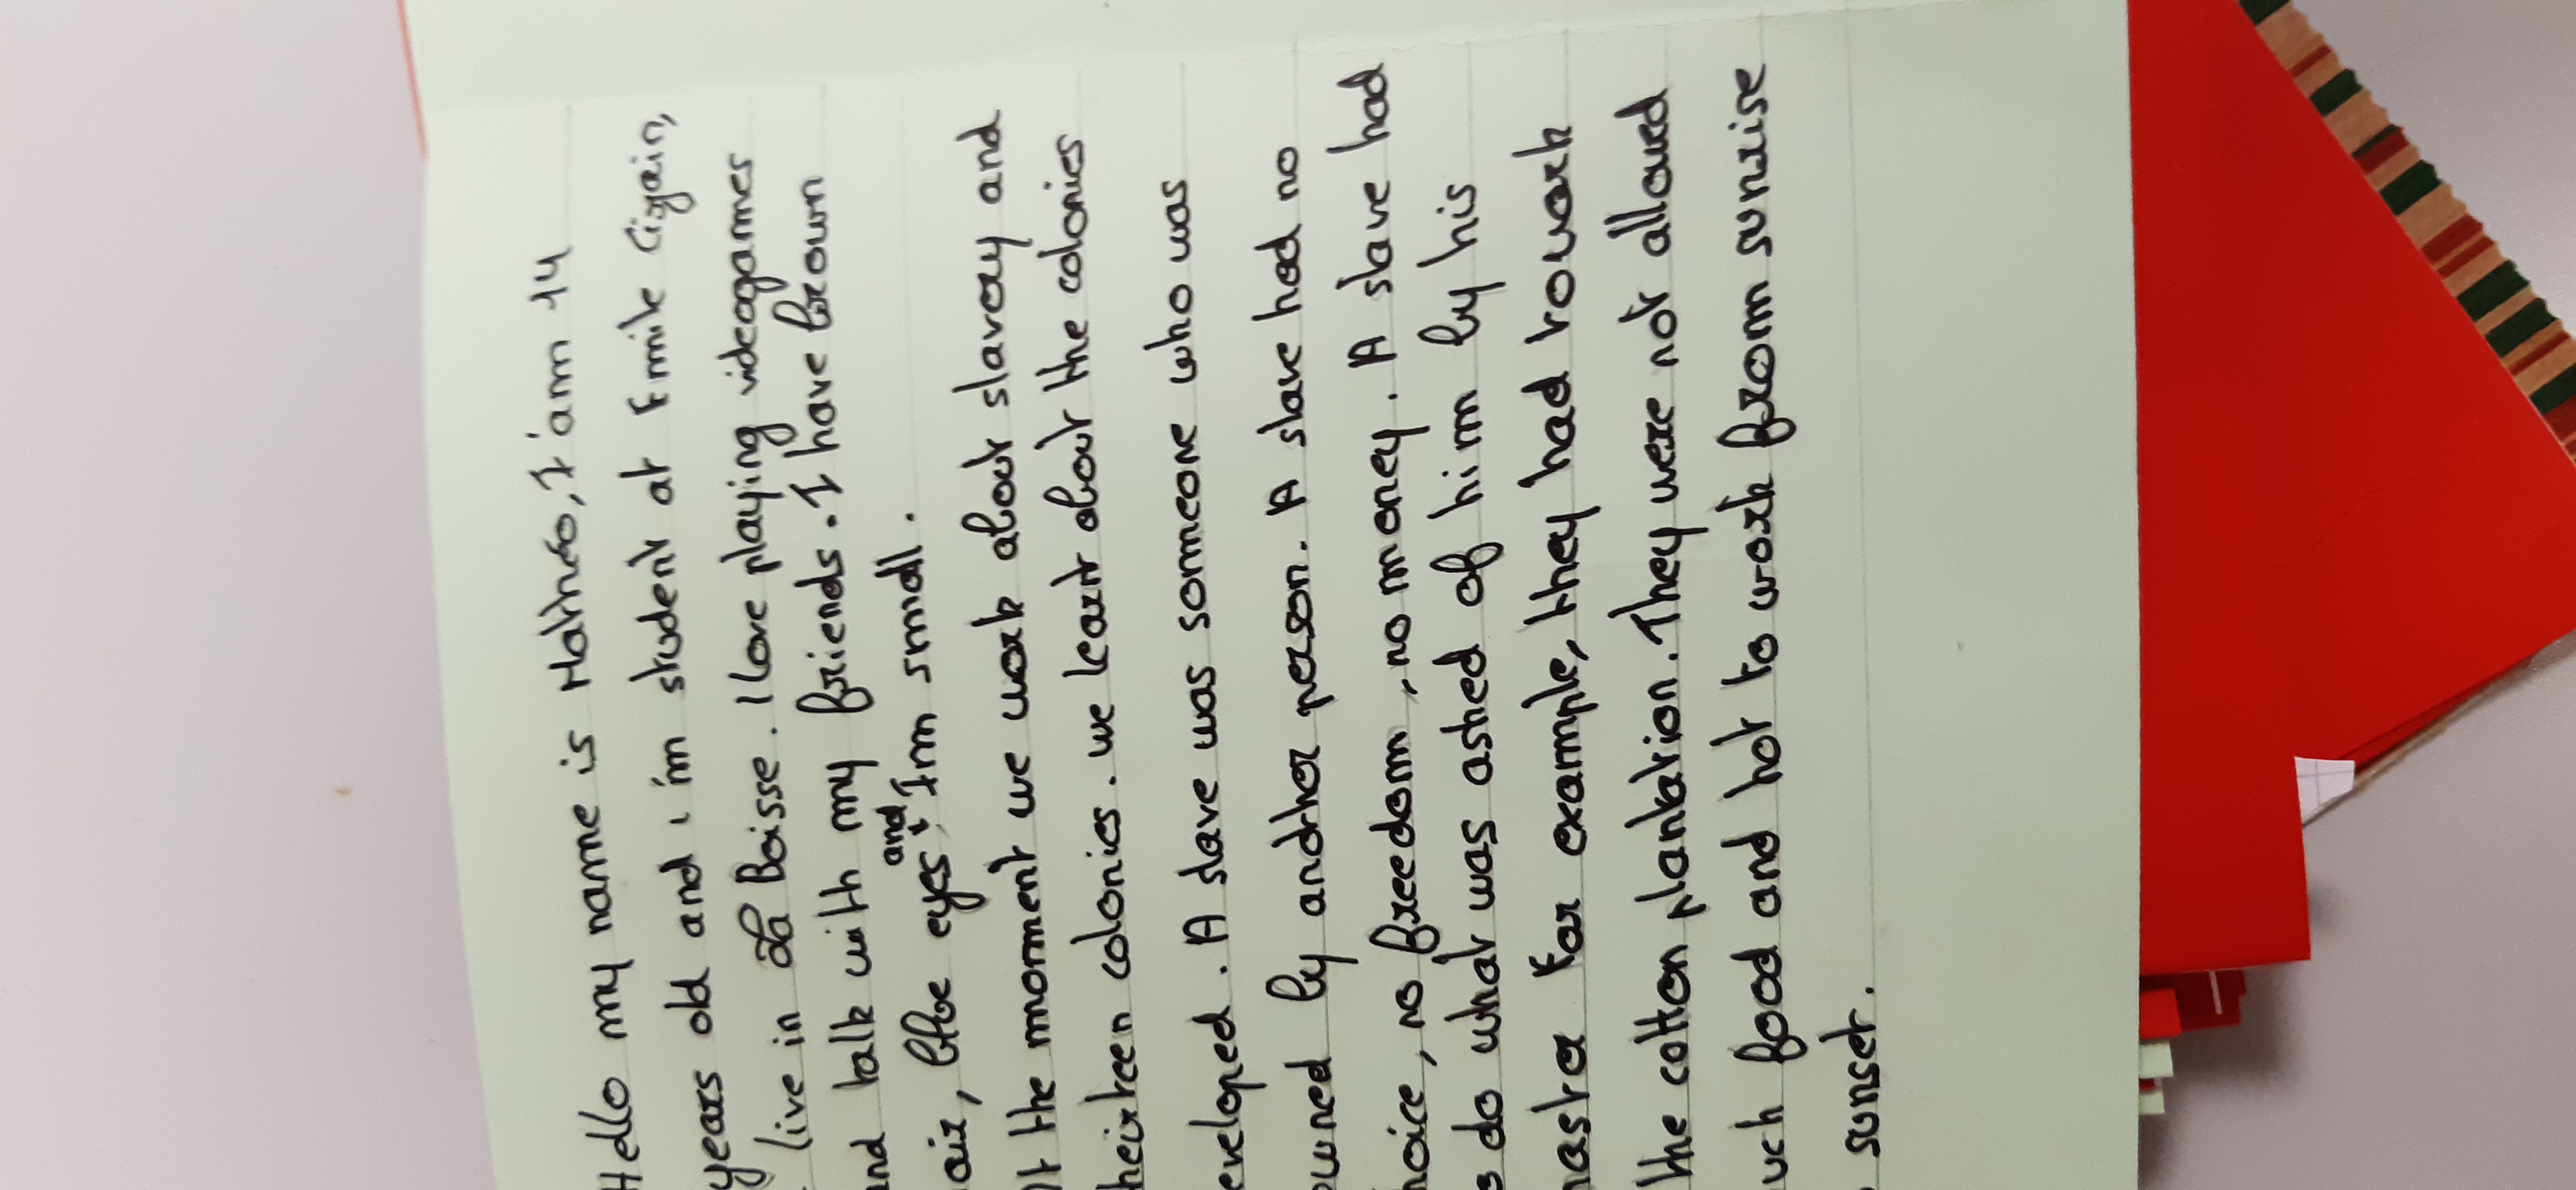 Hello my name is Mathéo, I am 14
years old and i'm student at Emile Cizain,
live in La Boisse. I love playing videogames
and talk with my friends. I have brown
air, bloe eyes, and I'm small.
At the moment we work about slavery and
theirteen colonies. we learnt about the colonies
eveloped. A slave was someone who was
owned by another person. A slave had no
hoice, no freedom, no money. A slave had
o do what was asked of him by his
master For example, they had to work
the cotton plantation. They were not allowed
uch food and hot to work from sunrise
sunset.